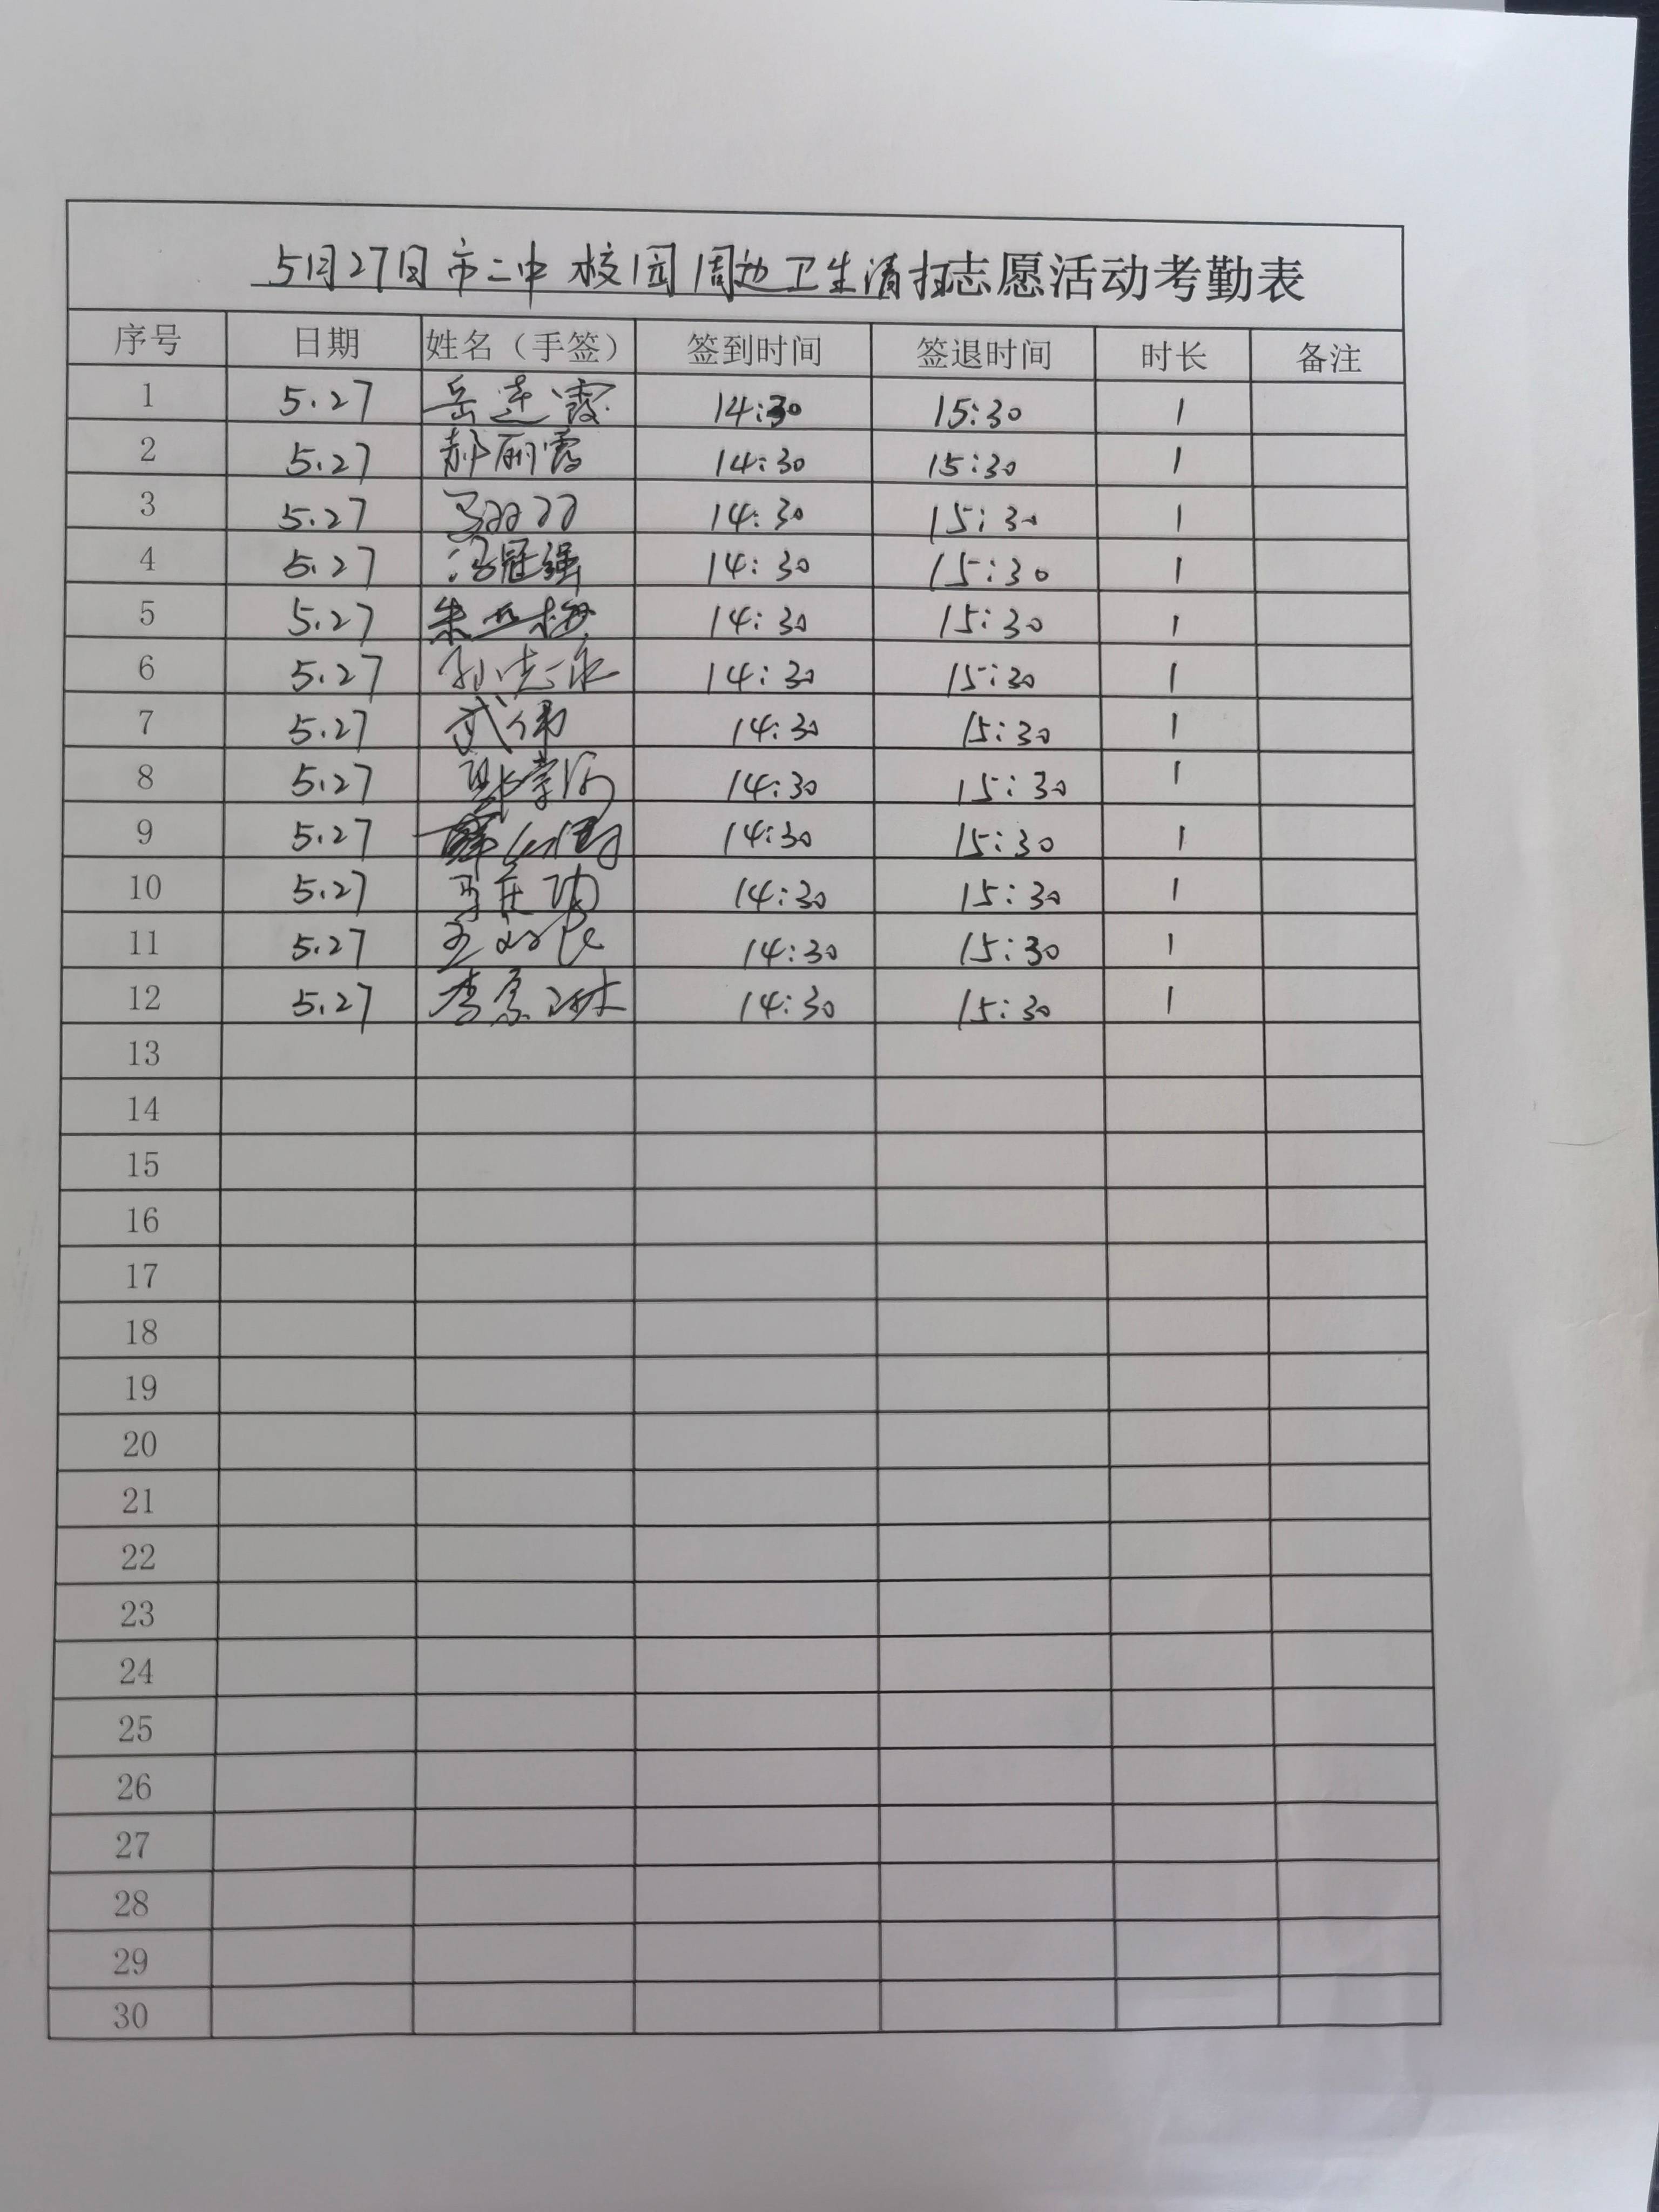 5月27日市二中校园周边卫生清扫志愿活动考勤表
序号 日期 姓名（手签） 签到时间 签退时间 时长 备注
1 5.27 岳连霞 14:30 15:30 1
2 5.27 郝丽霞 14:30 15:30 1
3 5.27 14:30 15:30 1
4 5.27 冯冠强 14:30 15:30 1
5 5.27 朱亚梅 14:30 15:30 1
6 5.27 孙志永 14:30 15:30 1
7 5.27 武伟 14:30 15:30 1
8 5.27 14:30 15:30 1
9 5.27 14:30 15:30 1
10 5.27 14:30 15:30 1
11 5.27 14:30 15:30 1
12 5.27 李原琳 14:30 15:30 1
13
14
15
16
17
18
19
20
21
22
23
24
25
26
27
28
29
30